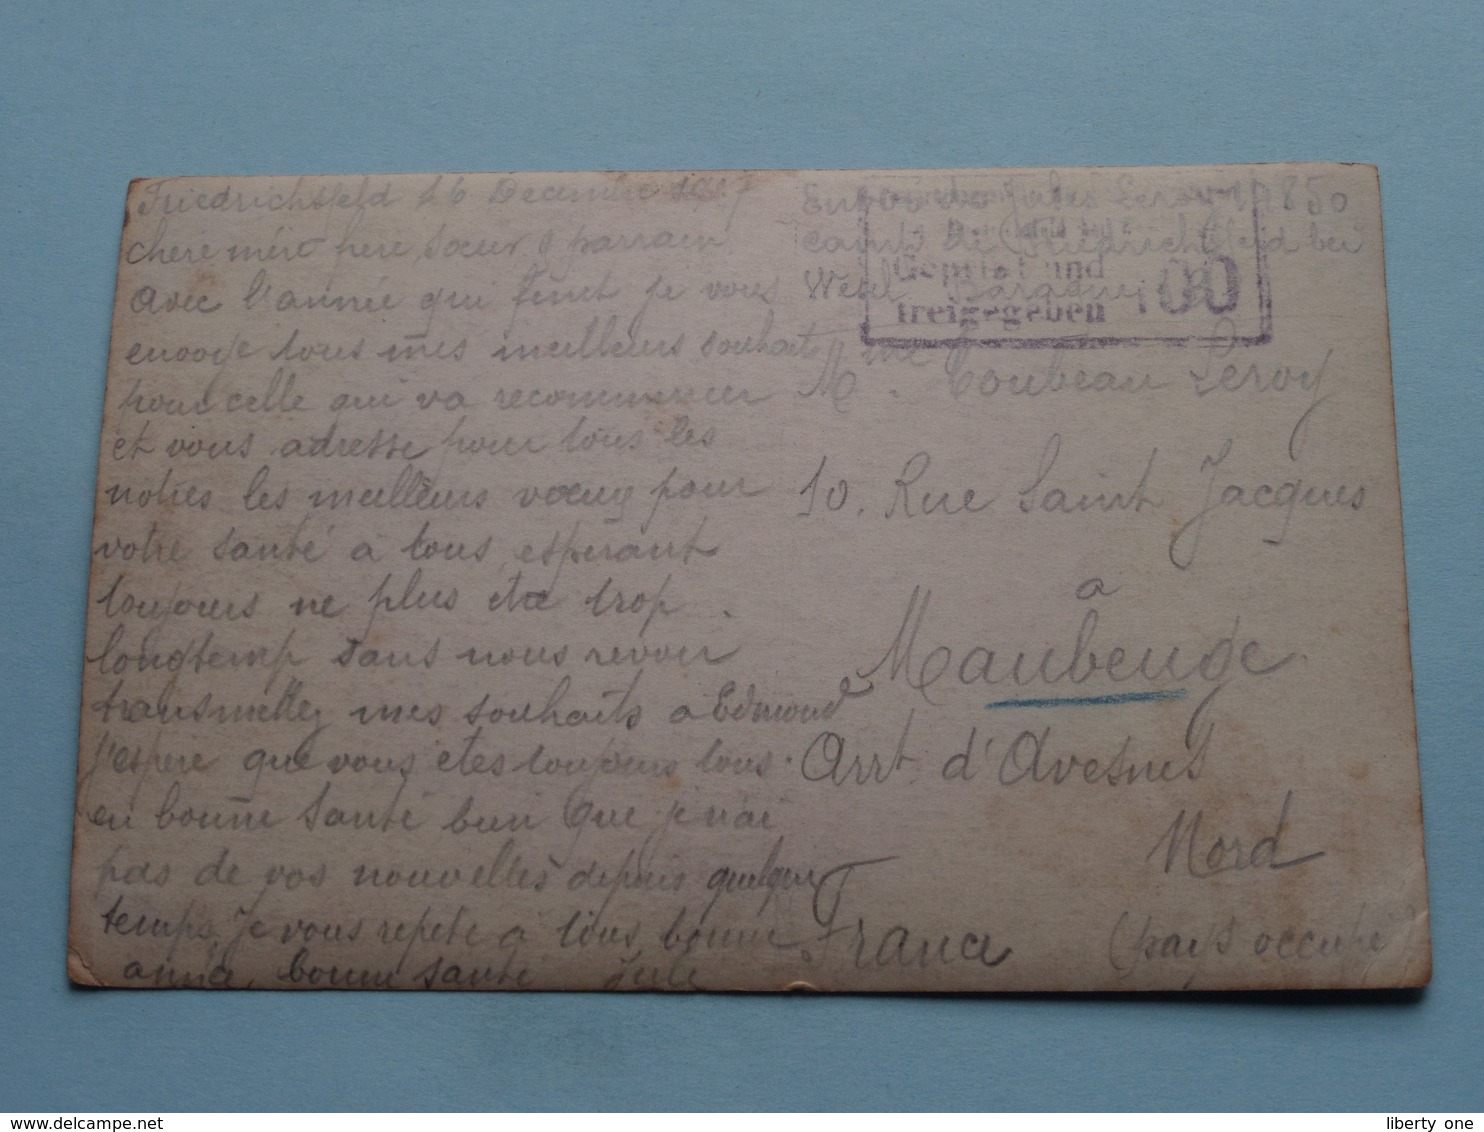 Friedrichsfeld 16 Decembre 1917
chere mère pere, sœur & parrain
avec l'année qui finit je vous
envoye tous mes meilleurs souhaits
pour celle qui va recommencer
et vous adresse pour tous les
notres les meilleurs vœux pour
votre santé a tous, esperant
toujours ne plus etre trop
longtemp sans nous revoir
transmettez mes souhaits a Edmond
j'espere que vous etes toujours tous
en bonne santé bien que je n'ai
pas de vos nouvelles depuis quelque
temps, Je vous repete a tous, bonne
année, bonne santé Jule
Envoi de Jules Leroy 11850
camp de Friedrichsfeld bei
Wesel Baraque
Geprüft und
freigegeben 100
Mme Coubeau Leroy
10. Rue Saint Jacques
a
Maubeuge
Arrt. d'Avesnes
Nord
France (pays occupé)
liberty one